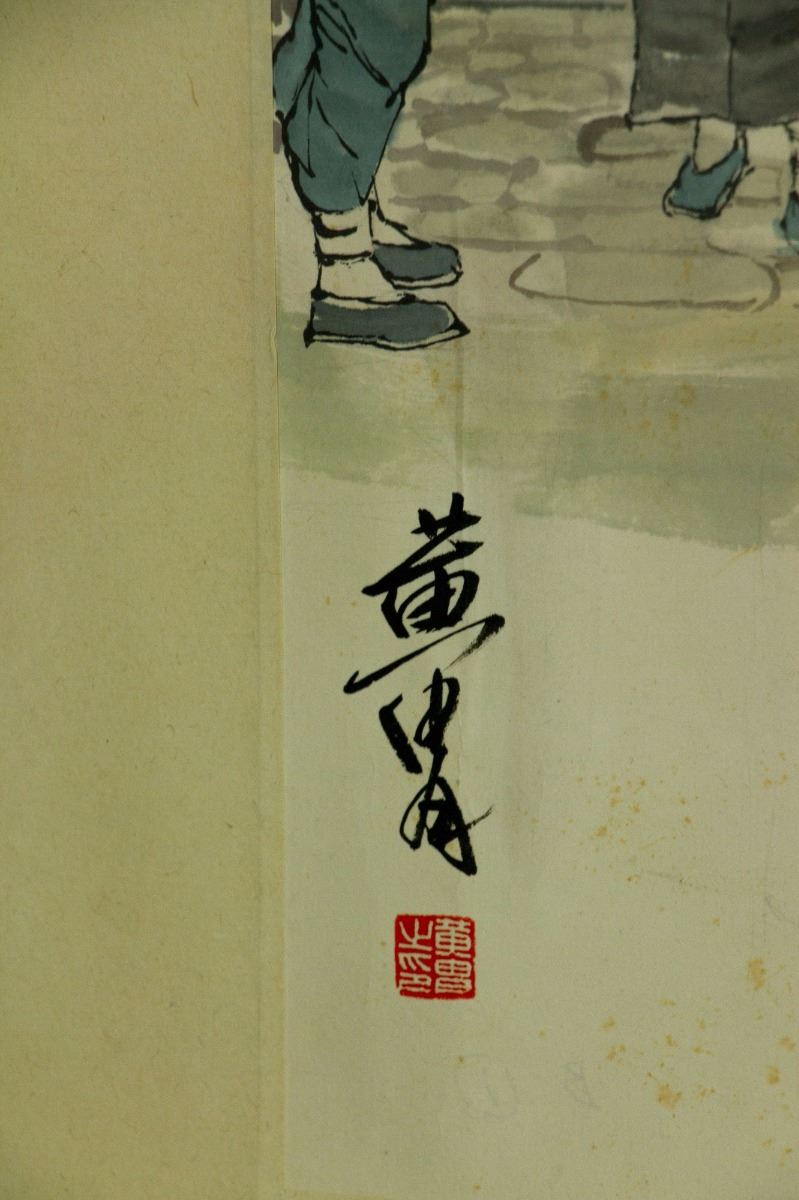 黄胄
黄胄
之印